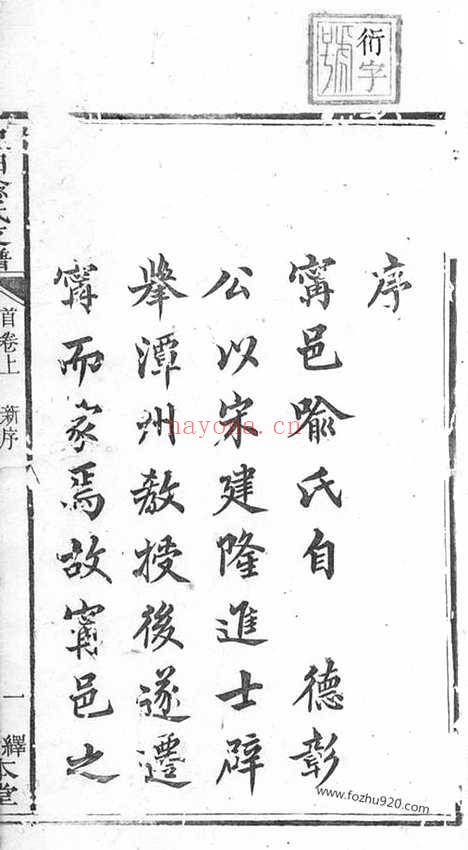 衍字
號
序
甯邑喻氏自 德彰
公以宋建隆進士辟
舉潭州教授後遂遷
甯而家焉故甯邑之
氏支譜
首卷上 新序
一 繹本堂
hayona.cn
www.fozhu920.com